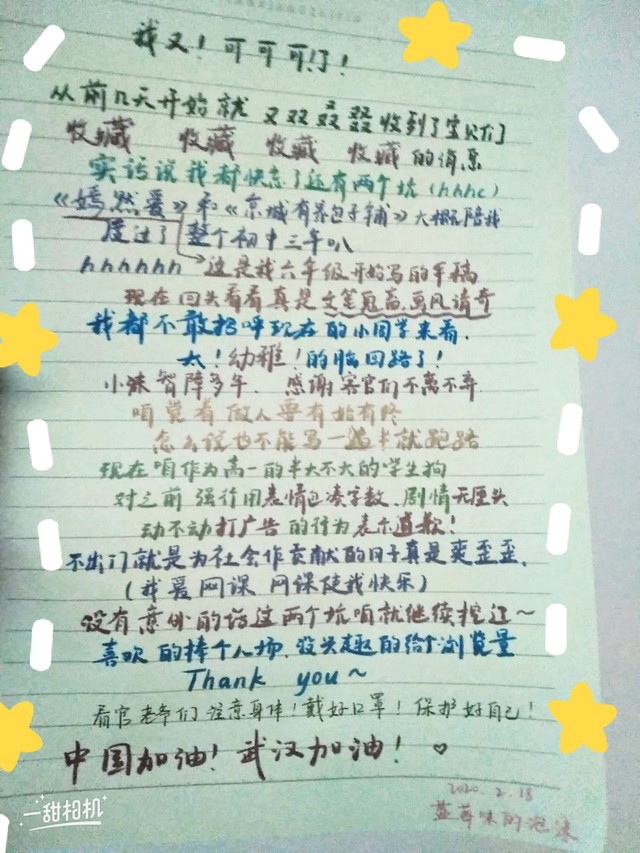 我又！可可可行！
从前几天开始就 又双叒叕收到了宝贝们
收藏 收藏 收藏 收藏的消息
实话说我都快忘了还有两个坑（hhhc）
《嫣然爱》和《京城有养包子铺》大概陪我
度过了整个初中三年叭
hhhhhh 这是我六年级开始写的手稿
现在回头看看真是文笔冠菌，画风清奇
我都不敢招呼现在的小同学来看，
太！幼稚！的脑回路了！
小妹智障多年，感谢客官们不离不弃
咱觉着做人要有始有终
怎么说也不能写一半就跑路
现在咱作为高一的半大不大的学生狗
对之前强行用表情包凑字数、剧情无厘头
动不动打广告的行为表示道歉！
不出门就是为社会作贡献的日子真是爽歪歪，
（我爱网课 网课使我快乐）
没有意外的话这两个坑咱就继续挖辽～
喜欢的捧个人场，没兴趣的给个浏览量
Thank you～
看官老爷们注意身体！戴好口罩！保护好自己！
中国加油！武汉加油！♡
2020.2.18
蓝莓味的泡沫
一甜相机